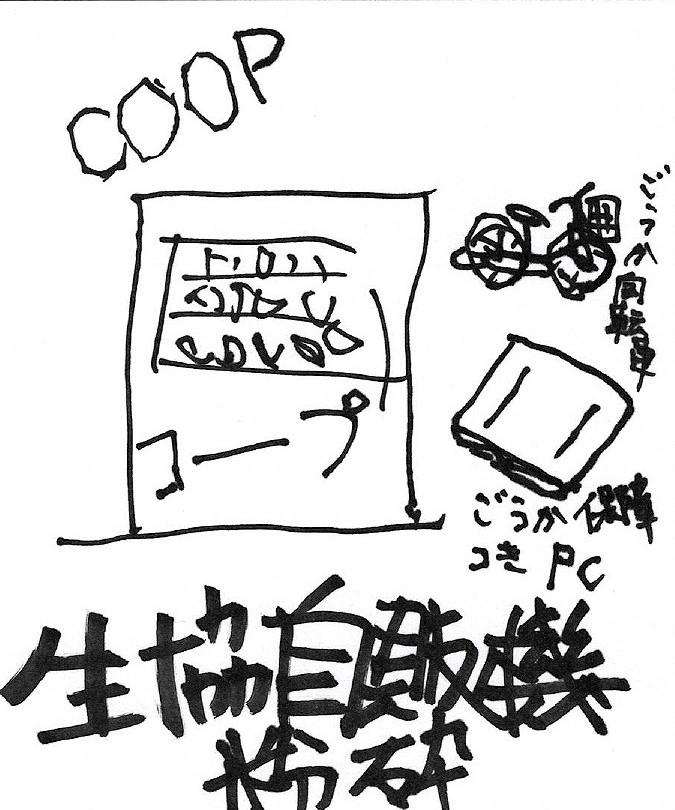 COOP
コープ
ごうか
自転車
ごうか保障
つきPC
生協自販機
粉砕